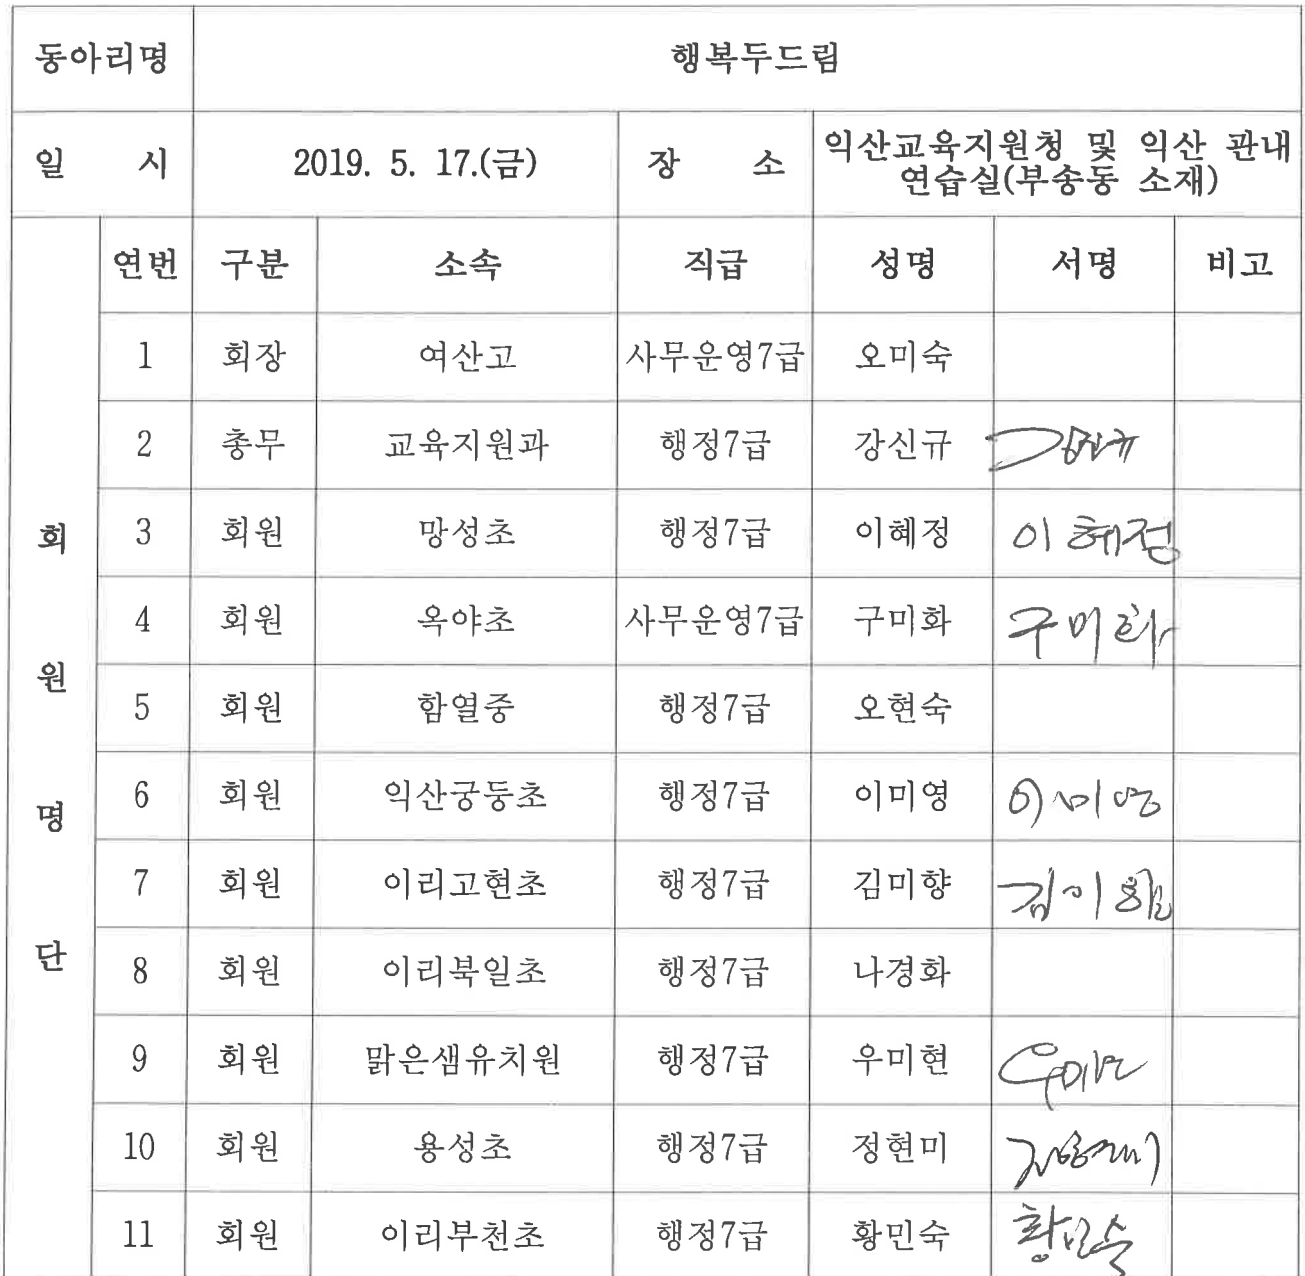 동아리명 행복두드림
일 시 2019. 5. 17.(금) 장 소 익산교육지원청 및 익산 관내
연습실(부송동 소재)
회원명단
연번 구분 소속 직급 성명 서명 비고
1 회장 여산고 사무운영7급 오미숙
2 총무 교육지원과 행정7급 강신규 강신규
3 회원 망성초 행정7급 이혜정 이혜정
4 회원 옥야초 사무운영7급 구미화 구미화
5 회원 함열중 행정7급 오현숙
6 회원 익산궁동초 행정7급 이미영 이미영
7 회원 이리고현초 행정7급 김미향 김미향
8 회원 이리북일초 행정7급 나경화
9 회원 맑은샘유치원 행정7급 우미현 우미현
10 회원 용성초 행정7급 정현미
11 회원 이리부천초 행정7급 황민숙 황민숙